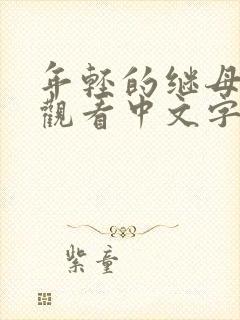 年轻的继母
觀看中文字
紫童